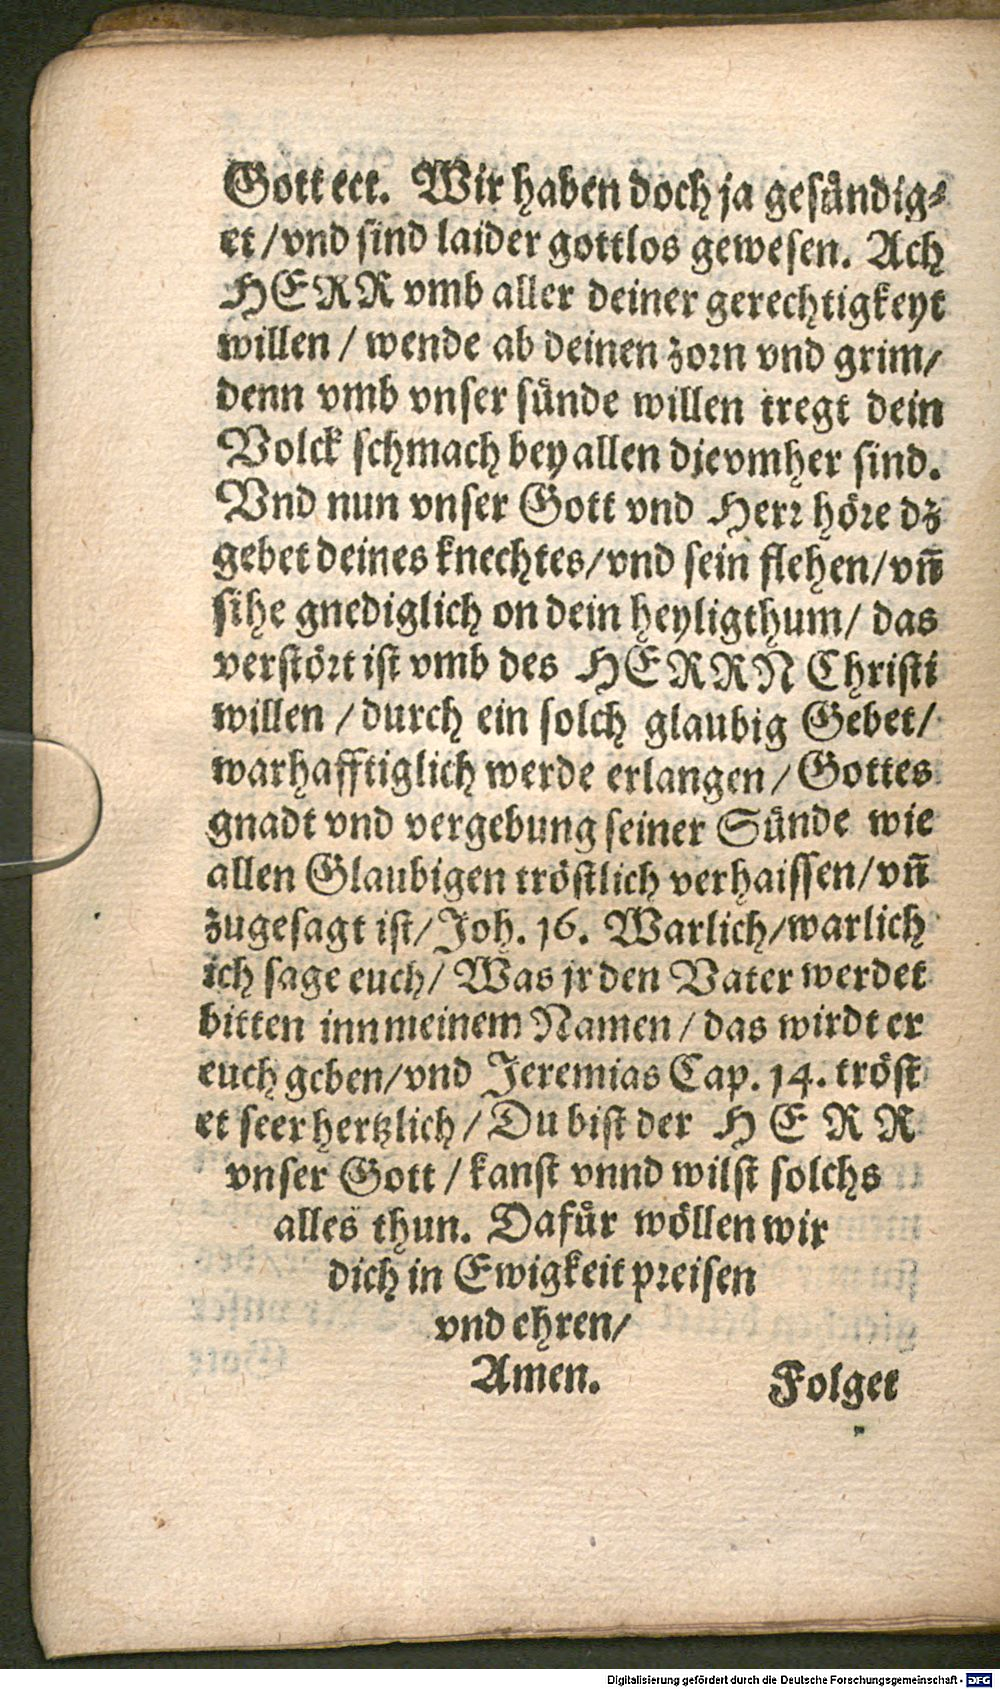 Gott ect. Wir haben doch ja gesündig⸗
et / vnd sind laider gottlos gewesen. Ach
HERR vmb aller deiner gerechtigkeyt
willen / wende ab deinen zorn vnd grim /
denn vmb vnser sünde willen tregt dein
Volck schmach bey allen die vmher sind.
Vnd nun vnser Gott vnd Herr höre dz
gebet deines knechtes / vnd sein flehen / vñ
sihe gnediglich on dein heyligthum / das
verstört ist vmb des HERRN Christi
willen / durch ein solch glaubig Gebet /
warhafftiglich werde erlangen / Gottes
gnadt vnd vergebung seiner Sünde wie
allen Glaubigen tröstlich verhaissen / vñ
zugesagt ist / Joh. 16. Warlich / warlich
ich sage euch / Was jr den Vater werdet
bitten inn meinem Namen / das wirdt er
euch geben / vnd Jeremias Cap. 14. tröst
et seer hertzlich / Du bist der HERR
vnser Gott / kanst vnnd wilst solchs
alles thun. Dafür wöllen wir
dich in Ewigkeit preisen
vnd ehren /
Amen. Folget
Digitalisierung gefördert durch die Deutsche Forschungsgemeinschaft - DFG